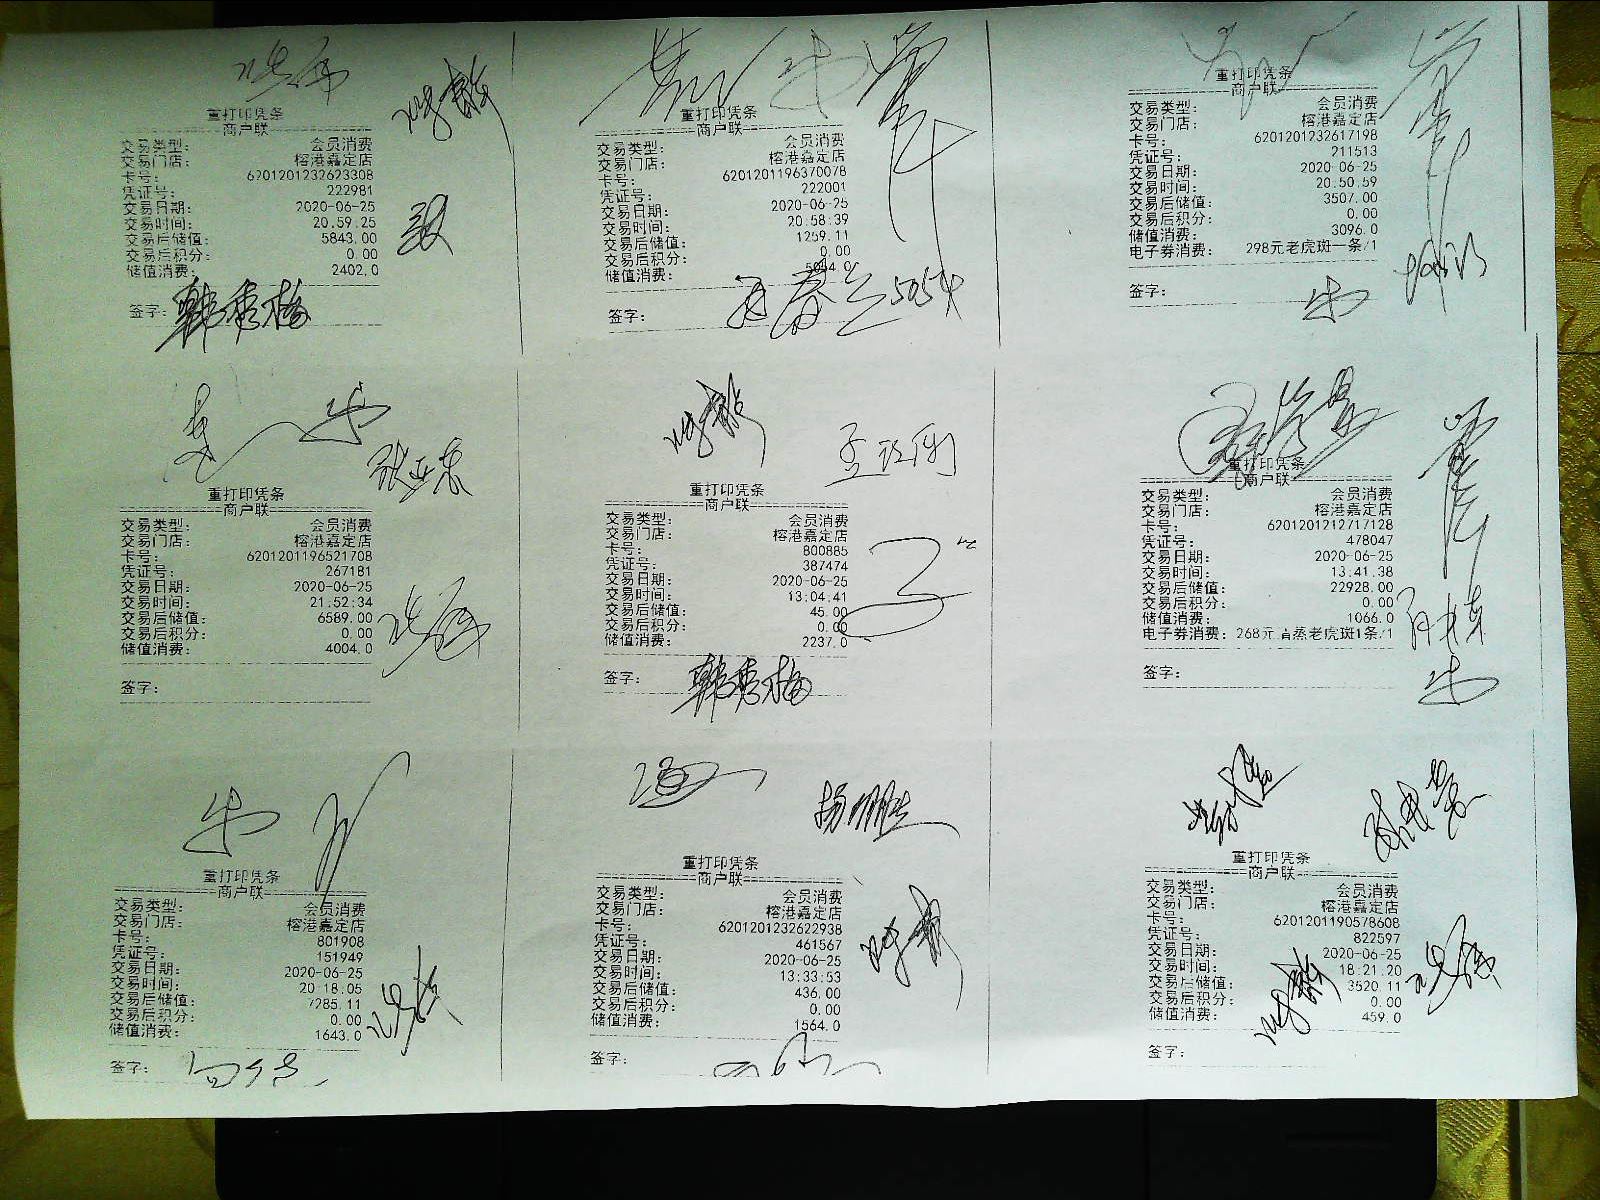 重打印凭条
商户联
交易类型： 会员消费
交易门店： 榕港嘉定店
卡号： 6201201232623308
凭证号： 222981
交易日期： 2020-06-25
交易时间： 20.59.25
交易后储值： 5843.00
交易后积分： 0.00
储值消费： 2402.0
签字： 韩秀梅
重打印凭条
商户联
交易类型： 会员消费
交易门店： 榕港嘉定店
卡号： 6201201196370078
凭证号： 222001
交易日期： 2020-06-25
交易时间： 20:58:39
交易后储值： 1259.11
交易后积分： 0.00
储值消费： 5054.0
签字： 5054
重打印凭条
商户联
交易类型： 会员消费
交易门店： 榕港嘉定店
卡号： 6201201232617198
凭证号： 211513
交易日期： 2020-06-25
交易时间： 20.50.59
交易后储值： 3507.00
交易后积分： 0.00
储值消费： 3096.0
电子券消费： 298元老虎斑一条/1
签字：
张亚东
重打印凭条
商户联
交易类型： 会员消费
交易门店： 榕港嘉定店
卡号： 6201201196521708
凭证号： 267181
交易日期： 2020-06-25
交易时间： 21:52:34
交易后储值： 6589.00
交易后积分： 0.00
储值消费： 4004.0
签字：
重打印凭条
商户联
交易类型： 会员消费
交易门店： 榕港嘉定店
卡号： 800885
凭证号： 387474
交易日期： 2020-06-25
交易时间： 13:04:41
交易后储值： 45.00
交易后积分： 0.00
储值消费： 2237.0
签字： 韩秀梅
重打印凭条
商户联
交易类型： 会员消费
交易门店： 榕港嘉定店
卡号： 6201201212717128
凭证号： 478047
交易日期： 2020-06-25
交易时间： 13.41.38
交易后储值： 22928.00
交易后积分： 0.00
储值消费： 1066.0
电子券消费： 268元清蒸老虎斑1条/1
签字：
重打印凭条
商户联
交易类型： 会员消费
交易门店： 榕港嘉定店
卡号： 801908
凭证号： 151949
交易日期： 2020-06-25
交易时间： 20 18.05
交易后储值： 7285.11
交易后积分： 0.00
储值消费： 1643.0
签字：
重打印凭条
商户联
交易类型： 会员消费
交易门店： 榕港嘉定店
卡号： 6201201232622938
凭证号： 461567
交易日期： 2020-06-25
交易时间： 13:33:53
交易后储值： 436.00
交易后积分： 0.00
储值消费： 1564.0
签字：
重打印凭条
商户联
交易类型： 会员消费
交易门店： 榕港嘉定店
卡号： 6201201190578608
凭证号： 822597
交易日期： 2020-06-25
交易时间： 18:21.20
交易后储值： 3520.11
交易后积分： 0.00
储值消费： 459.0
签字：